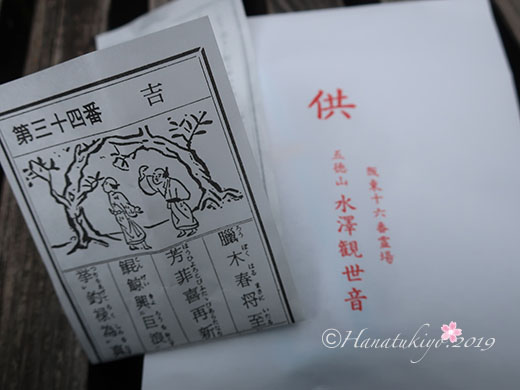 第三十四番
吉
臘木春将至
芳非喜再新
鯤鯨興巨浪
挙録為
供
坂東十六番霊場
五徳山 水澤観世音
©Hanatukiyo.2019